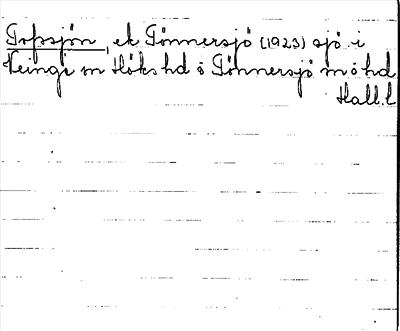 Torpsjön, ek Tönnersjö (1923) sjö i
Veinge sn Höks hd o Tönnersjö sn o hd
Hall. l